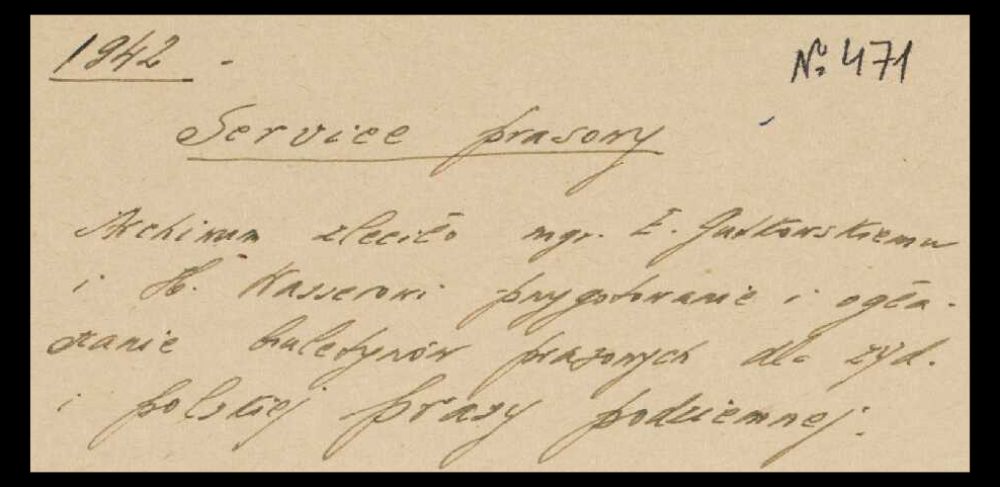 1942 - № 471
Service prasowy
Archiwum zleciło mgr. E. Gutkowskiemu
i H. Wasserowi przygotowanie i ogła-
szanie buletynów prasowych dla żyd.
i polskiej prasy podziemnej.